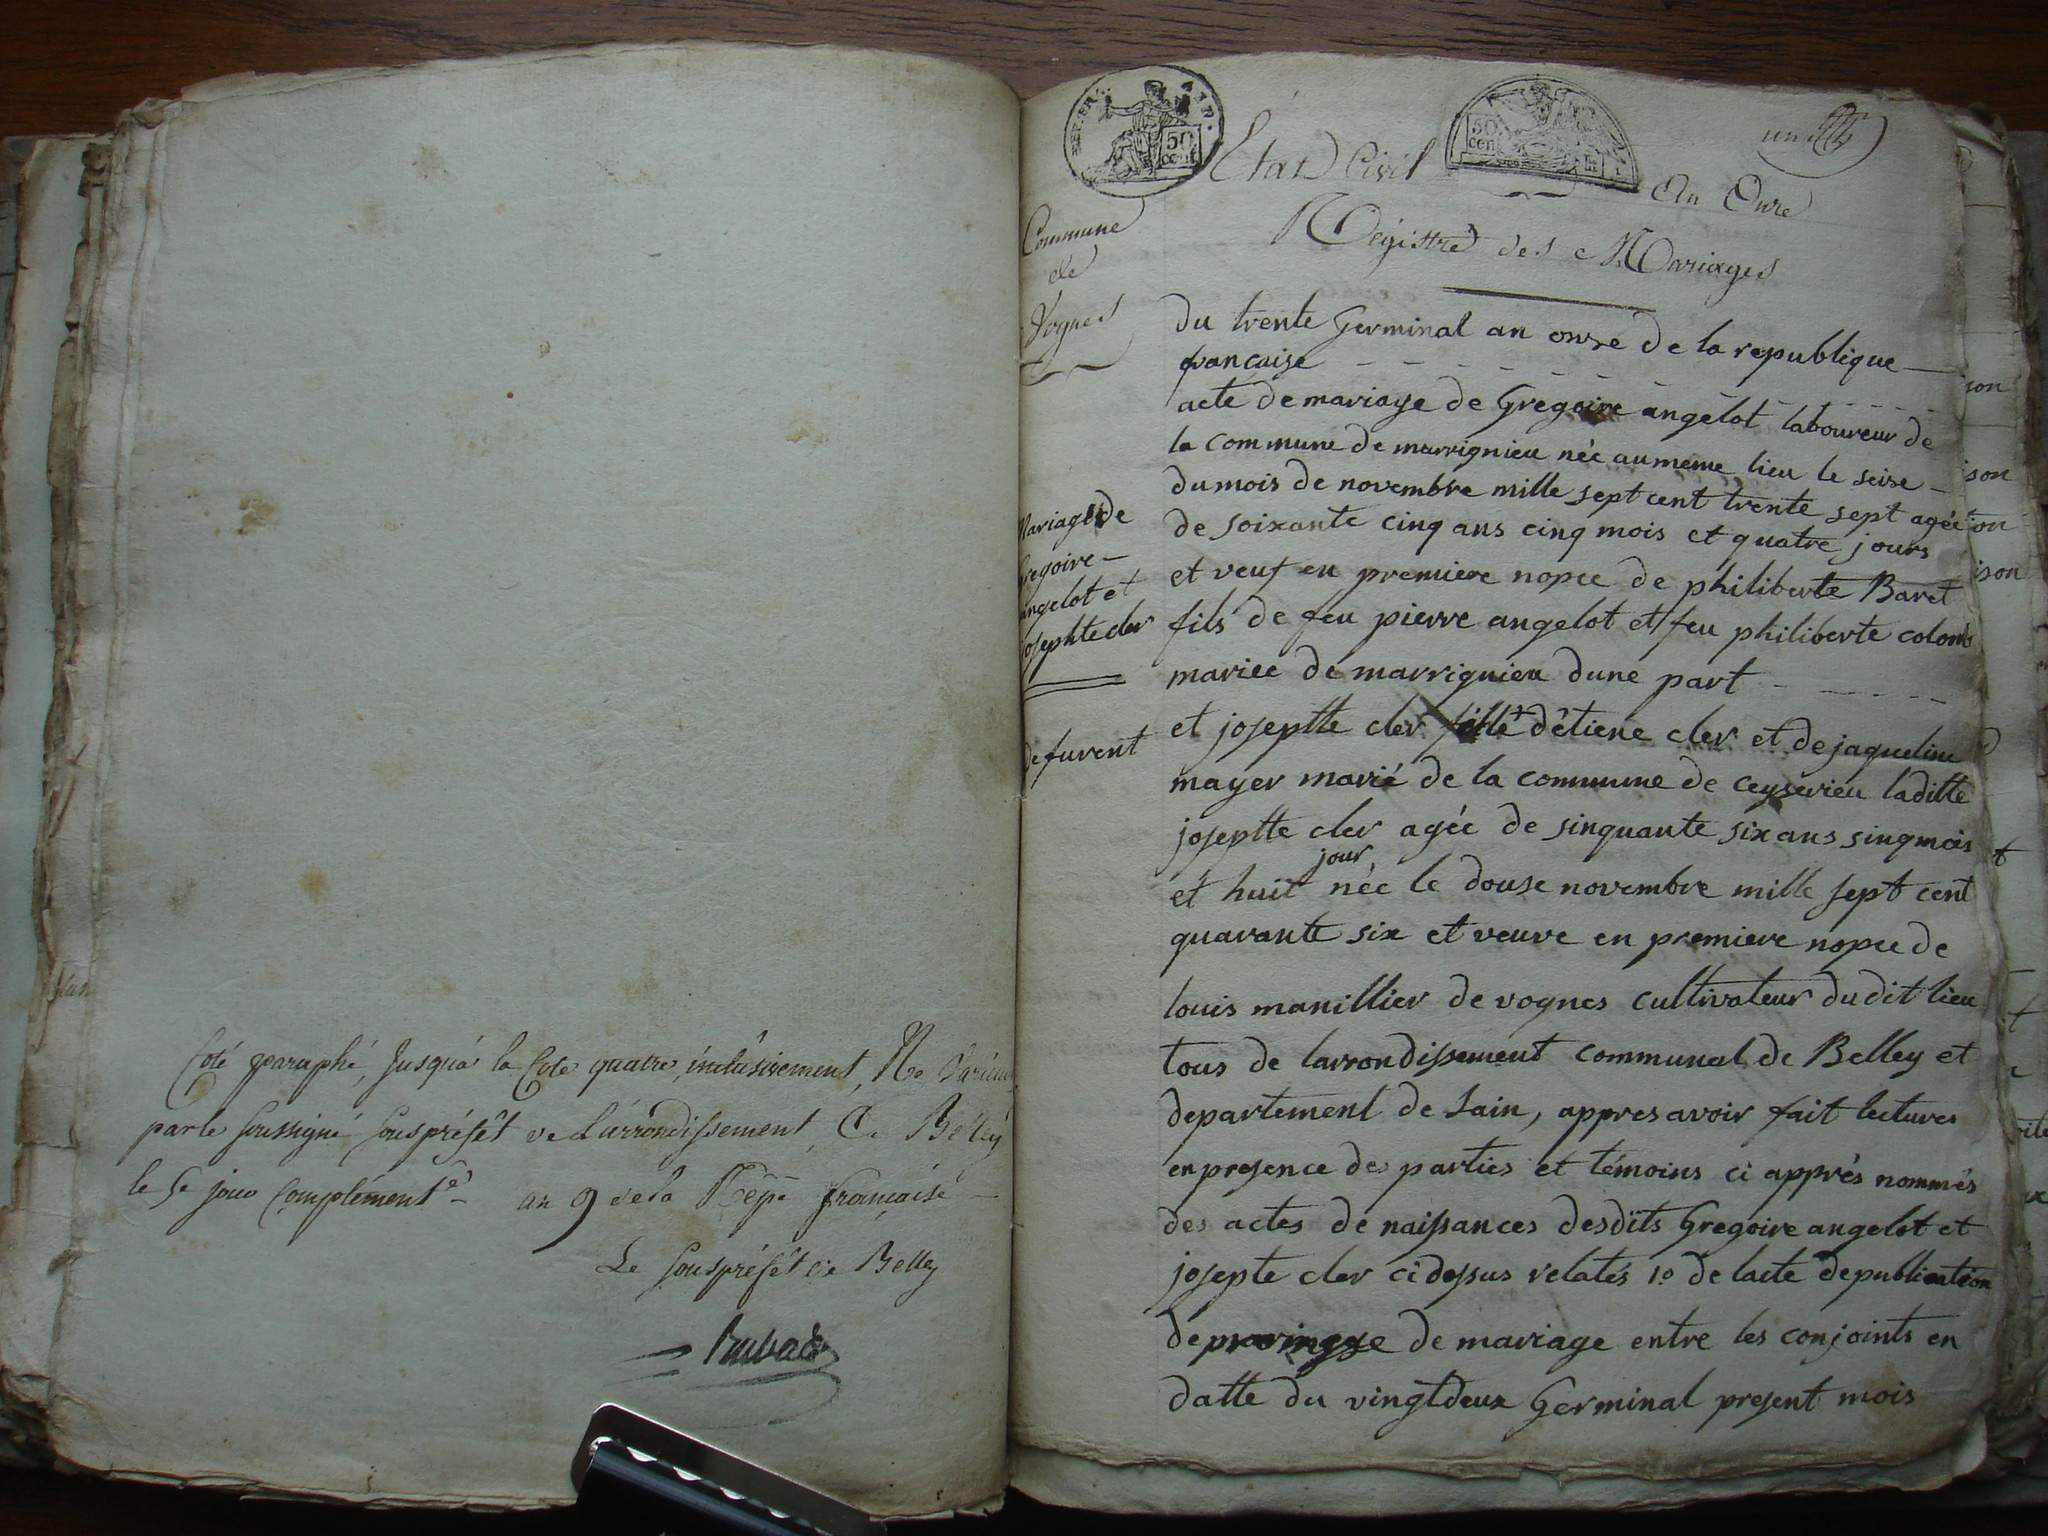 Coté paraphé, Jusquà la Cote quatre, inclusivement,
par le soussigné souspréfêt de L'arrondissement, De Belley
le 5e jour complément.e an 9 de la Rép.e française
Le souspréfêt de Belley
REP. FRA.
50 cent
50 cen
un
Etat Civil
An Onze
Registre des Mariages
Commune
de
Vognes
du trente Germinal an onze de la republique
francaise
acte de mariage de Gregoire angelot laboureur de
la commune de marrignieu née au meme lieu le seize
du mois de novembre mille sept cent trente sept agée
de soixante cinq ans cinq mois et quatre jours
et veuf en premiere nopce de philiberte Baret
fils de feu pierre angelot et feu philiberte colomb
mariee de marrignieu dune part
et josephte cler fille d'êtiene cler et de jaqueline
mayer marié de la commune de ceyserieu laditte
josephte cler agée de sinquante six ans sinq mois
et huit jour née le douse novembre mille sept cent
quarante six et veuve en premiere nopce de
louis manillier de vognes cultivateur du dit lieu
tous de larrondissement communal de Belley et
departement de Lain, appres avoir fait lectures
en presence des parties et témoins ci apprés nommés
des actes de naissances desdits Gregoire angelot et
josepte cler ci dessus relatés 1o de lacte de publication
de de mariage entre les conjoints en
datte du vingt deux Germinal present mois
Mariage de
gregoire
angelot et
josephte cler
de furent